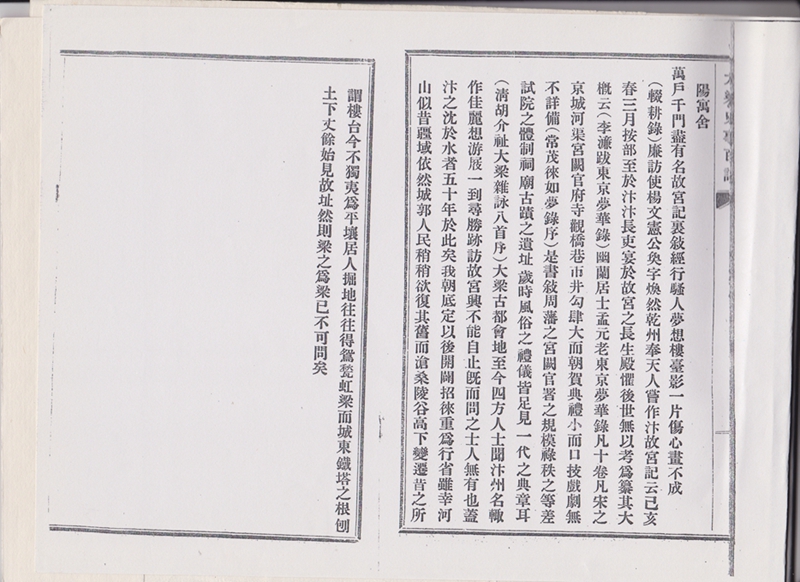 陽寓舍
萬戶千門盡有名故宮記裏敍經行騷人夢想樓臺影一片傷心畫不成
(輟耕錄)廉訪使楊文憲公奐字煥然乾州奉天人嘗作汴故宮記云己亥
春三月按部至於汴汴長吏宴於故宮之長生殿懼後世無以考爲纂其大
槪云(李濂跋東京夢華錄)幽蘭居士孟元老東京夢華錄凡十卷凡宋之
京城河渠宮闕官府寺觀橋巷市井勾肆大而朝賀典禮小而口技戲劇無
不詳備(常茂徠如夢錄序)是書敍周藩之宮闕官署之規模祿秩之等差
試院之體制祠廟古蹟之遺址歲時風俗之禮儀皆足見一代之典章耳
(淸胡介祉大梁雜詠八首序)大梁古都會地至今四方人士聞汴州名輙
作佳麗想游屐一到尋勝跡訪故宮興不能自止旣而問之士人無有也蓋
汴之沈於水者五十年於此矣我朝底定以後開闢招徠重爲行省雖幸河
山似昔疆域依然城郭人民稍稍欲復其舊而滄桑陵谷高下變遷昔之所
謂樓台今不獨夷爲平壤居人掘地往往得鴛甃虹梁而城東鐵塔之根刨
土下丈餘始見故址然則梁之爲梁已不可問矣